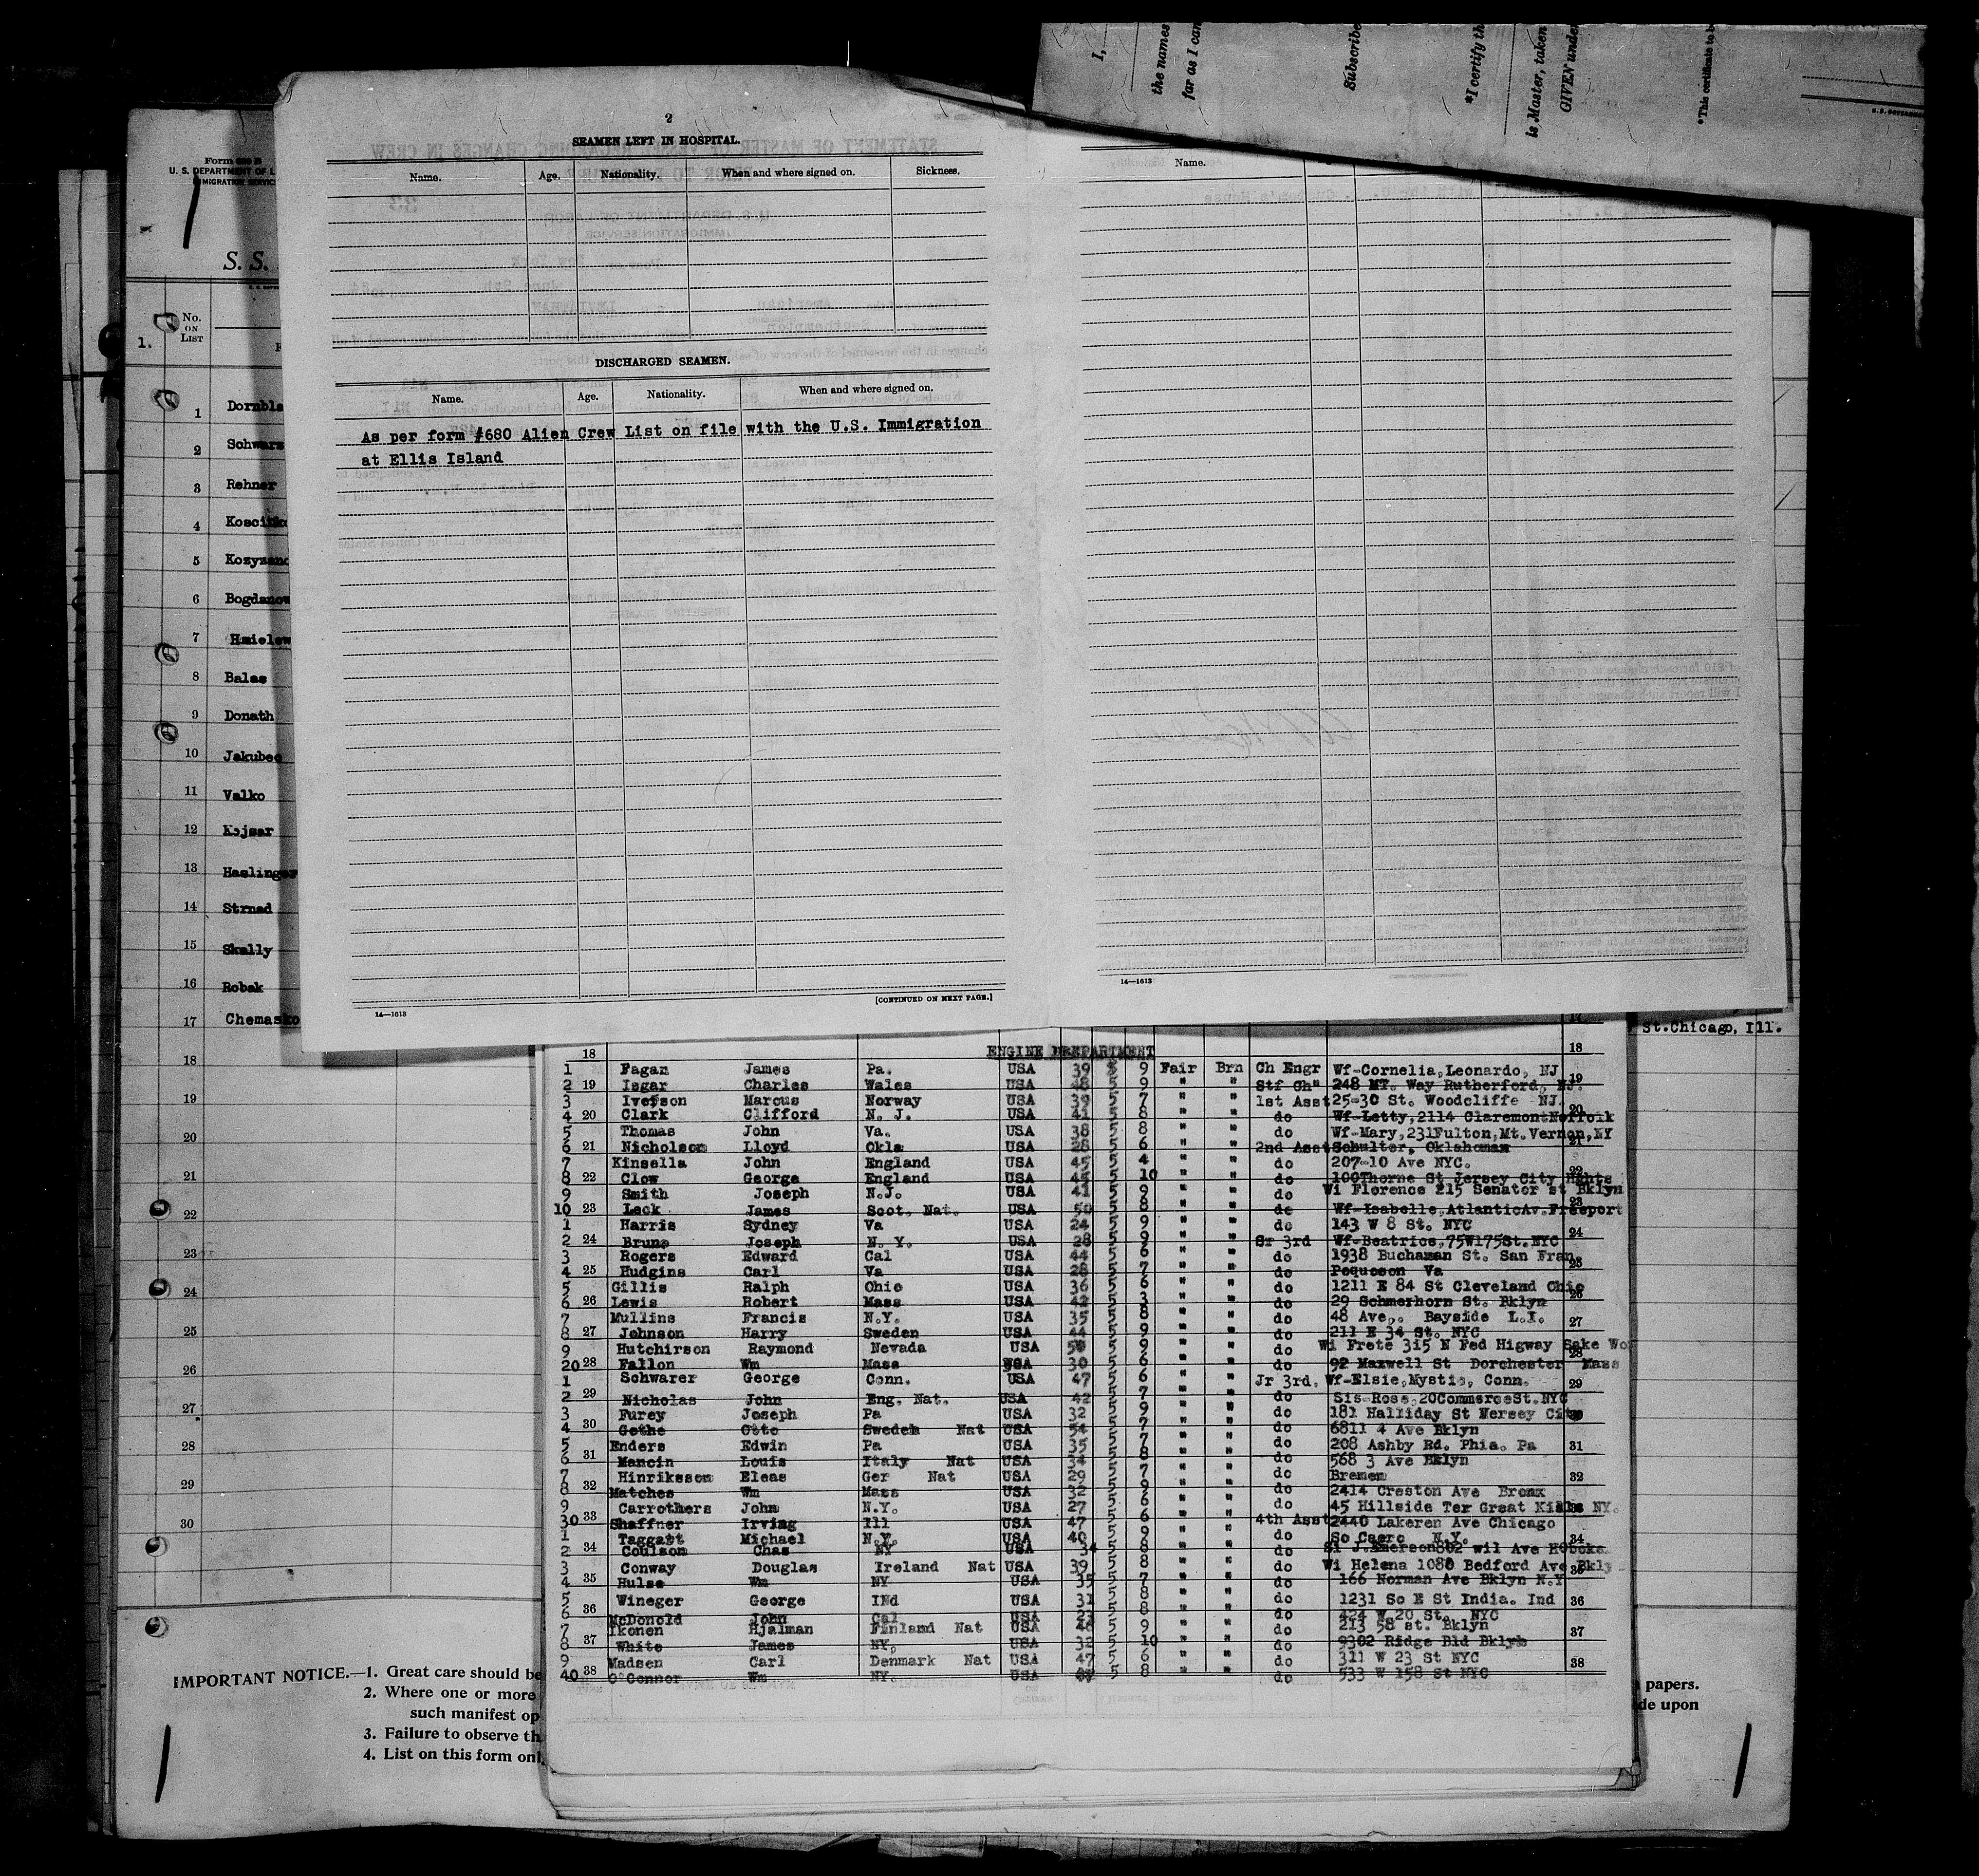 I,
the names
far as I can
Subscribe
*I certify th
is Master, taken
GIVEN under
*This certificate to be
Form 680 B
U. S. DEPARTMENT OF L
IMMIGRATION SERVICE
S. S.
No. ON LIST
1.
1 Dornbla
2 Schwarz
3 Rehner
4 Koscinko
5 Kozyzano
6 Bogdanow
7 Hmielew
8 Balas
9 Donath
10 Jakubec
11 Valko
12 Kojsar
13 Haslinger
14 Strnad
15 Skally
16 Robak
17 Chemasko
18
19
20
21
22
23
24
25
26
27
28
29
30
2
SEAMEN LEFT IN HOSPITAL.
Name. Age. Nationality. When and where signed on. Sickness.
DISCHARGED SEAMEN.
Name. Age. Nationality. When and where signed on.
As per form #680 Alien Crew List on file with the U.S. Immigration
at Ellis Island
[CONTINUED ON NEXT PAGE.]
14—1613
Name.
14—1613
St.Chicago, Ill.
18 ENGINE DEPARTMENT 18
1 Fagan James Pa. USA 39 5 9 Fair Brn Ch Engr Wf-Cornelia,Leonardo, NJ
2 19 Isgar Charles Wales USA 48 5 9 " " Stf Ch" 248 MT. Way Rutherford, NJ. 19
3 Iverson Marcus Norway USA 39 5 7 " " 1st Asst 25-30 St. Woodcliffe NJ.
4 20 Clark Clifford N. J. USA 41 5 8 " " do Wf-Letty,2114 ClaremontNorfolk 20
5 Thomas John Va. USA 38 5 8 " " do Wf-Mary,231Fulton,Mt.Vernon,NY
6 21 Nicholson Lloyd Okla USA 28 5 6 " " 2nd Asst Schulter, Oklahoman 21
7 Kinsella John England USA 45 5 4 " " do 207-10 Ave NYC.
8 22 Clow George England USA 45 5 10 " " do 100Thorne St Jersey City Hghts 22
9 Smith Joseph N.J. USA 41 5 9 " " do Wi Florence 215 Senator st Bklyn
10 23 Leck James Scot. Nat. USA 50 5 8 " " do Wf-Isabelle,AtlanticAv.Freeport 23
1 Harris Sydney Va USA 24 5 9 " " do 143 W 8 St. NYC
2 24 Bruno Joseph N. Y. USA 28 5 9 " " Sr 3rd Wf-Beatrice,75W175St.NYC 24
3 Rogers Edward Cal USA 44 5 6 " " do 1938 Buchanan St. San Fran.
4 25 Hudgins Carl Va USA 28 5 7 " " do Poquoson Va 25
5 Gillis Ralph Ohio USA 36 5 6 " " do 1211 E 84 St Cleveland Ohio
6 26 Lewis Robert Mass USA 42 5 3 " " do 29 Schmerhorn St. Bklyn 26
7 Mullins Francis N.Y. USA 35 5 8 " " do 48 Ave,. Bayside L.I.
8 27 Johnson Harry Sweden USA 44 5 9 " " do 211 E 34 St. NYC 27
9 Hutchirson Raymond Nevada USA 50 5 9 " " do Wi Frete 315 N Fed Higway Sake Wo
20 28 Fallon Wm Mass USA 30 5 6 " " do 92 Maxwell St Dorchester Mass 28
1 Schwarer George Conn. USA 47 5 6 " " Jr 3rd. Wf-Elsie,Mystic, Conn.
2 29 Nicholas John Eng. Nat. USA 42 5 7 " " do Sis-Rose,20CommerceSt.NYC 29
3 Furey Joseph Pa USA 32 5 9 " " do 181 Halliday St Nersey City
4 30 Gothe Otto Sweden Nat USA 54 5 7 " " do 6811 4 Ave Bklyn
5 Enders Edwin Pa USA 35 5 7 " " do 208 Ashby Rd. Phia. Pa
6 31 Mancin Louis Italy Nat USA 34 5 8 " " do 568 3 Ave Bklyn 31
7 Hinriksson Eleas Ger Nat USA 29 5 7 " " do Bremen
8 32 Matches Wm Mass USA 32 5 9 " " do 2414 Creston Ave Bronx 32
9 Carrothers John N.Y. USA 27 5 6 " " do 45 Hillside Ter Great Kills NY.
30 33 Shaffner Irving Ill USA 47 5 6 " " 4th Asst 2440 Lakeren Ave Chicago
1 Taggatt Michael N.Y. USA 40 5 9 " " do So Caero N.Y.
2 34 Coulson Chas NY USA 34 5 8 " " do Si J.Emerson802 wil Ave Hoboke 34
3 Conway Douglas Ireland Nat USA 39 5 8 " " do Wi Helena 1080 Bedford Ave Bkly
4 35 Hulse Wm NY USA 35 5 7 " " do 166 Norman Ave Bklyn N.Y 35
5 Wineger George INd USA 31 5 8 " " do 1231 So E St India. Ind
6 36 McDonold John Cal USA 23 5 8 " " do 424 W 20 St. NYC 36
7 Ikonen Hjalman Finland Nat USA 48 5 9 " " do 213 58 st. Bklyn
8 37 White James NY, USA 32 5 10 " " do 9302 Ridge Bld Bklyn 37
9 Madsen Carl Denmark Nat USA 47 5 6 " " do 311 W 23 St NYC
40 38 O'Connor Wm NY. USA 5 8 " " do 533 W 158 St NYC 38
IMPORTANT NOTICE.—1. Great care should be
2. Where one or more
such manifest op
3. Failure to observe th
4. List on this form onl
papers.
de upon